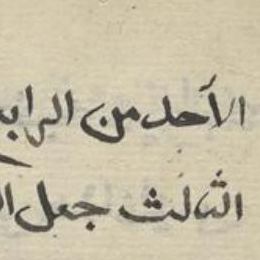 الأحد من الراب
الثالث جعل ا